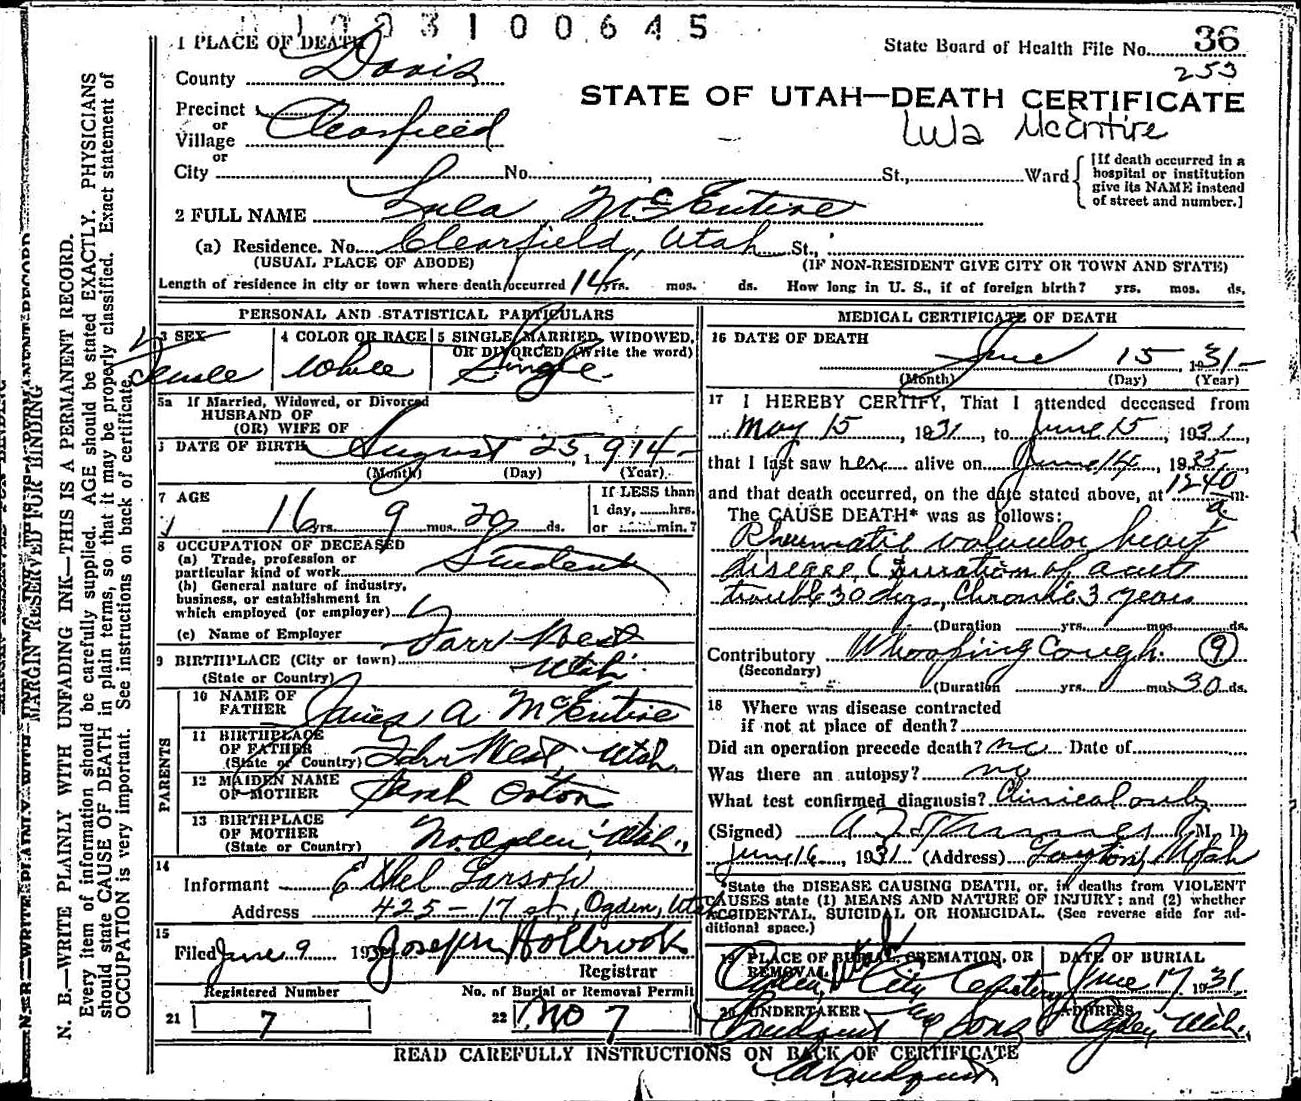 1003100645
State Board of Health File No. 36
253
1 PLACE OF DEATH
County Davis
STATE OF UTAH—DEATH CERTIFICATE
Lula McEntire
Precinct
or
Village Clearfield
or
City No. St., Ward
[If death occurred in a
hospital or institution
give its NAME instead
of street and number.]
2 FULL NAME Lula McEntire
(a) Residence. No. Clearfield, Utah St.,
(USUAL PLACE OF ABODE) (IF NON-RESIDENT GIVE CITY OR TOWN AND STATE)
Length of residence in city or town where death occurred 14 yrs. mos. ds. How long in U. S., if of foreign birth? yrs. mos. ds.
PERSONAL AND STATISTICAL PARTICULARS
3 SEX
Female
4 COLOR OR RACE
White
5 SINGLE, MARRIED, WIDOWED,
OR DIVORCED (Write the word)
Single
5a If Married, Widowed, or Divorced
HUSBAND OF
(OR) WIFE OF
DATE OF BIRTH August 25, 1914
(Month) (Day) (Year)
7 AGE
16 yrs. 9 mos. 20 ds.
If LESS than
1 day, hrs.
or min.?
8 OCCUPATION OF DECEASED
(a) Trade, profession or
particular kind of work Student
(b) General nature of industry,
business, or establishment in
which employed (or employer)
(c) Name of Employer
9 BIRTHPLACE (City or town) Farr West
(State or Country) Utah
PARENTS
10 NAME OF
FATHER James A McEntire
11 BIRTHPLACE
OF FATHER
(State or Country) Farr West, Utah.
12 MAIDEN NAME
OF MOTHER Sarah Orton
13 BIRTHPLACE
OF MOTHER
(State or Country) No. Ogden, Utah.
14
Informant Ethel Larson
Address 425-17 st, Ogden, Utah
15
Filed June 9 193 Joseph Holbrook
Registrar
Registered Number No. of Burial or Removal Permit
21 7 22 No 7
MEDICAL CERTIFICATE OF DEATH
16 DATE OF DEATH
June 15, 1931
(Month) (Day) (Year)
17 I HEREBY CERTIFY, That I attended deceased from
May 15, 1931, to June 15, 1931,
that I last saw her alive on June 14, 1935,
and that death occurred, on the date stated above, at 1240 a m.
The CAUSE DEATH* was as follows:
Rheumatic valvular heart
disease, Duration of acute
trouble 30 days, Chronic 3 years
(Duration yrs. mos. ds.
Contributory Whooping Cough. 9
(Secondary)
(Duration yrs. mos. 30 ds.
18 Where was disease contracted
if not at place of death?
Did an operation precede death? no Date of
Was there an autopsy? no
What test confirmed diagnosis? Clinical only
(Signed) M. D.
June 16, 1931 (Address) Layton, Utah
*State the DISEASE CAUSING DEATH, or, in deaths from VIOLENT
CAUSES state (1) MEANS AND NATURE OF INJURY; and (2) whether
ACCIDENTAL, SUICIDAL OR HOMICIDAL. (See reverse side for ad-
ditional space.)
19 PLACE OF BURIAL, CREMATION, OR
REMOVAL
Ogden, Utah City Cemetery
DATE OF BURIAL
June 17 1931
20 UNDERTAKER
Lindquist & Sons
ADDRESS
Ogden, Utah.
READ CAREFULLY INSTRUCTIONS ON BACK OF CERTIFICATE
MARGIN RESERVED FOR BINDING
N. B.—WRITE PLAINLY WITH UNFADING INK—THIS IS A PERMANENT RECORD.
Every item of information should be carefully supplied. AGE should be stated EXACTLY. PHYSICIANS
should state CAUSE OF DEATH in plain terms, so that it may be properly classified. Exact statement of
OCCUPATION is very important. See instructions on back of certificate.